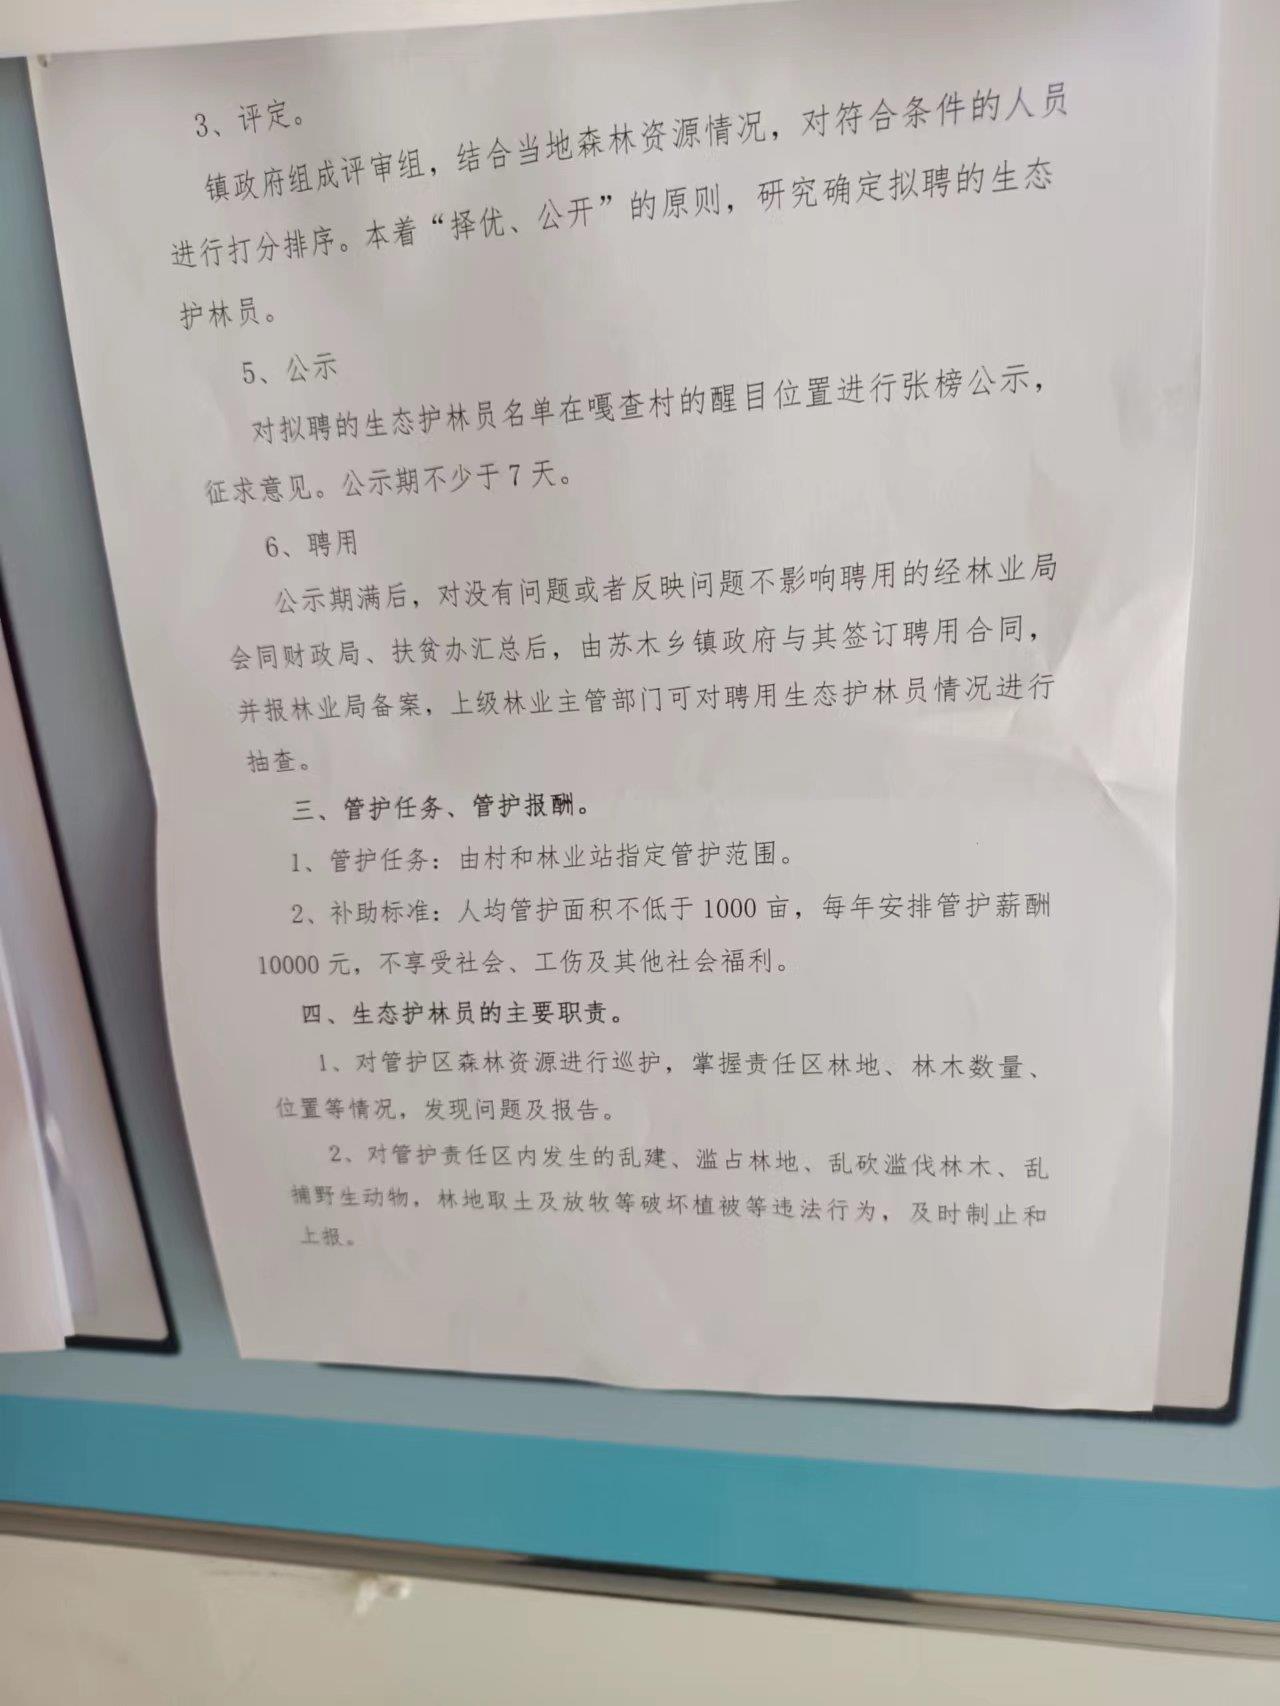 3、评定。
镇政府组成评审组，结合当地森林资源情况，对符合条件的人员
进行打分排序。本着“择优、公开”的原则，研究确定拟聘的生态
护林员。
5、公示
对拟聘的生态护林员名单在嘎查村的醒目位置进行张榜公示，
征求意见。公示期不少于7天。
6、聘用
公示期满后，对没有问题或者反映问题不影响聘用的经林业局
会同财政局、扶贫办汇总后，由苏木乡镇政府与其签订聘用合同，
并报林业局备案，上级林业主管部门可对聘用生态护林员情况进行
抽查。
三、管护任务、管护报酬。
1、管护任务：由村和林业站指定管护范围。
2、补助标准：人均管护面积不低于1000亩，每年安排管护薪酬
10000元，不享受社会、工伤及其他社会福利。
四、生态护林员的主要职责。
1、对管护区森林资源进行巡护，掌握责任区林地、林木数量、
位置等情况，发现问题及报告。
2、对管护责任区内发生的乱建、滥占林地、乱砍滥伐林木、乱
捕野生动物，林地取土及放牧等破坏植被等违法行为，及时制止和
上报。